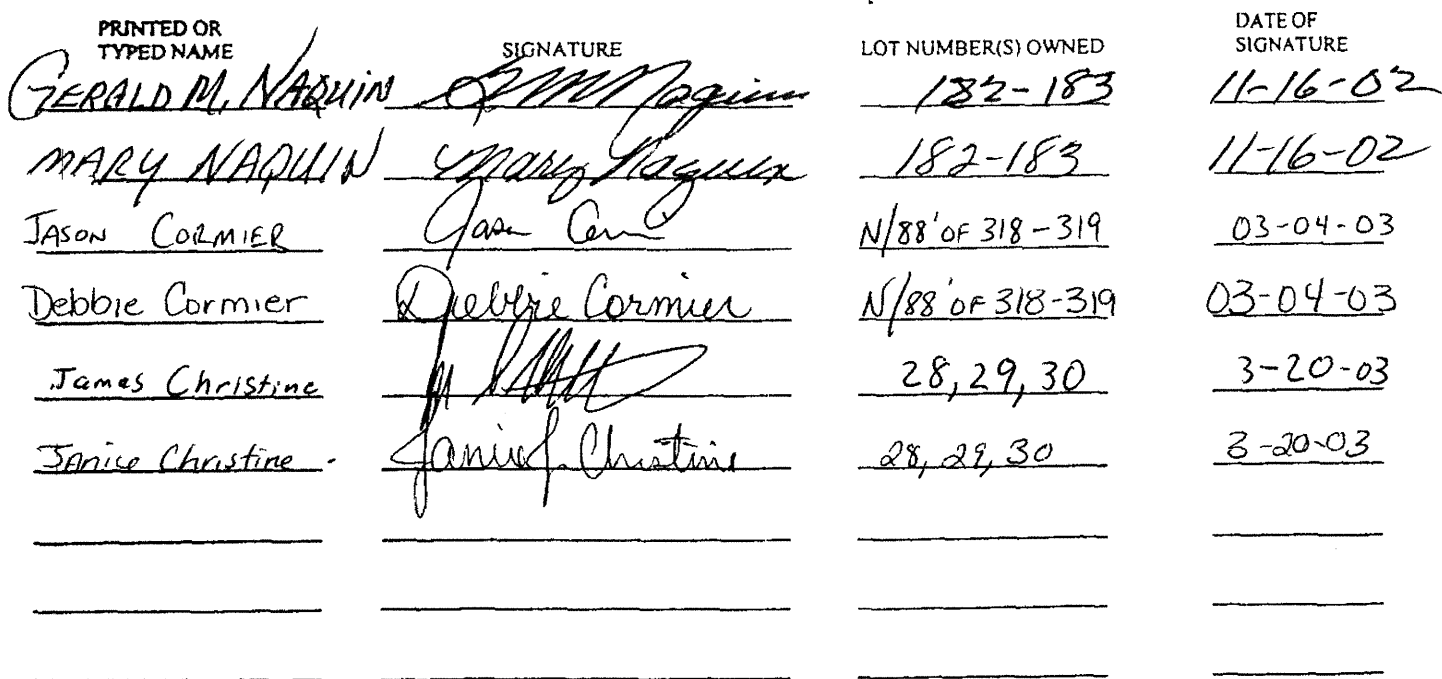 PRINTED OR TYPED NAME SIGNATURE LOT NUMBER(S) OWNED DATE OF SIGNATURE
GERALD M. NAQUIN G M Naquin 182-183 11-16-02
MARY NAQUIN Mary Naquin 182-183 11-16-02
JASON CORMIER Jason N/88' OF 318-319 03-04-03
Debbie Cormier Debbie Cormier N/88' OF 318-319 03-04-03
James Christine 28, 29, 30 3-20-03
Janice Christine Janice J. Christine 28, 29, 30 3-20-03